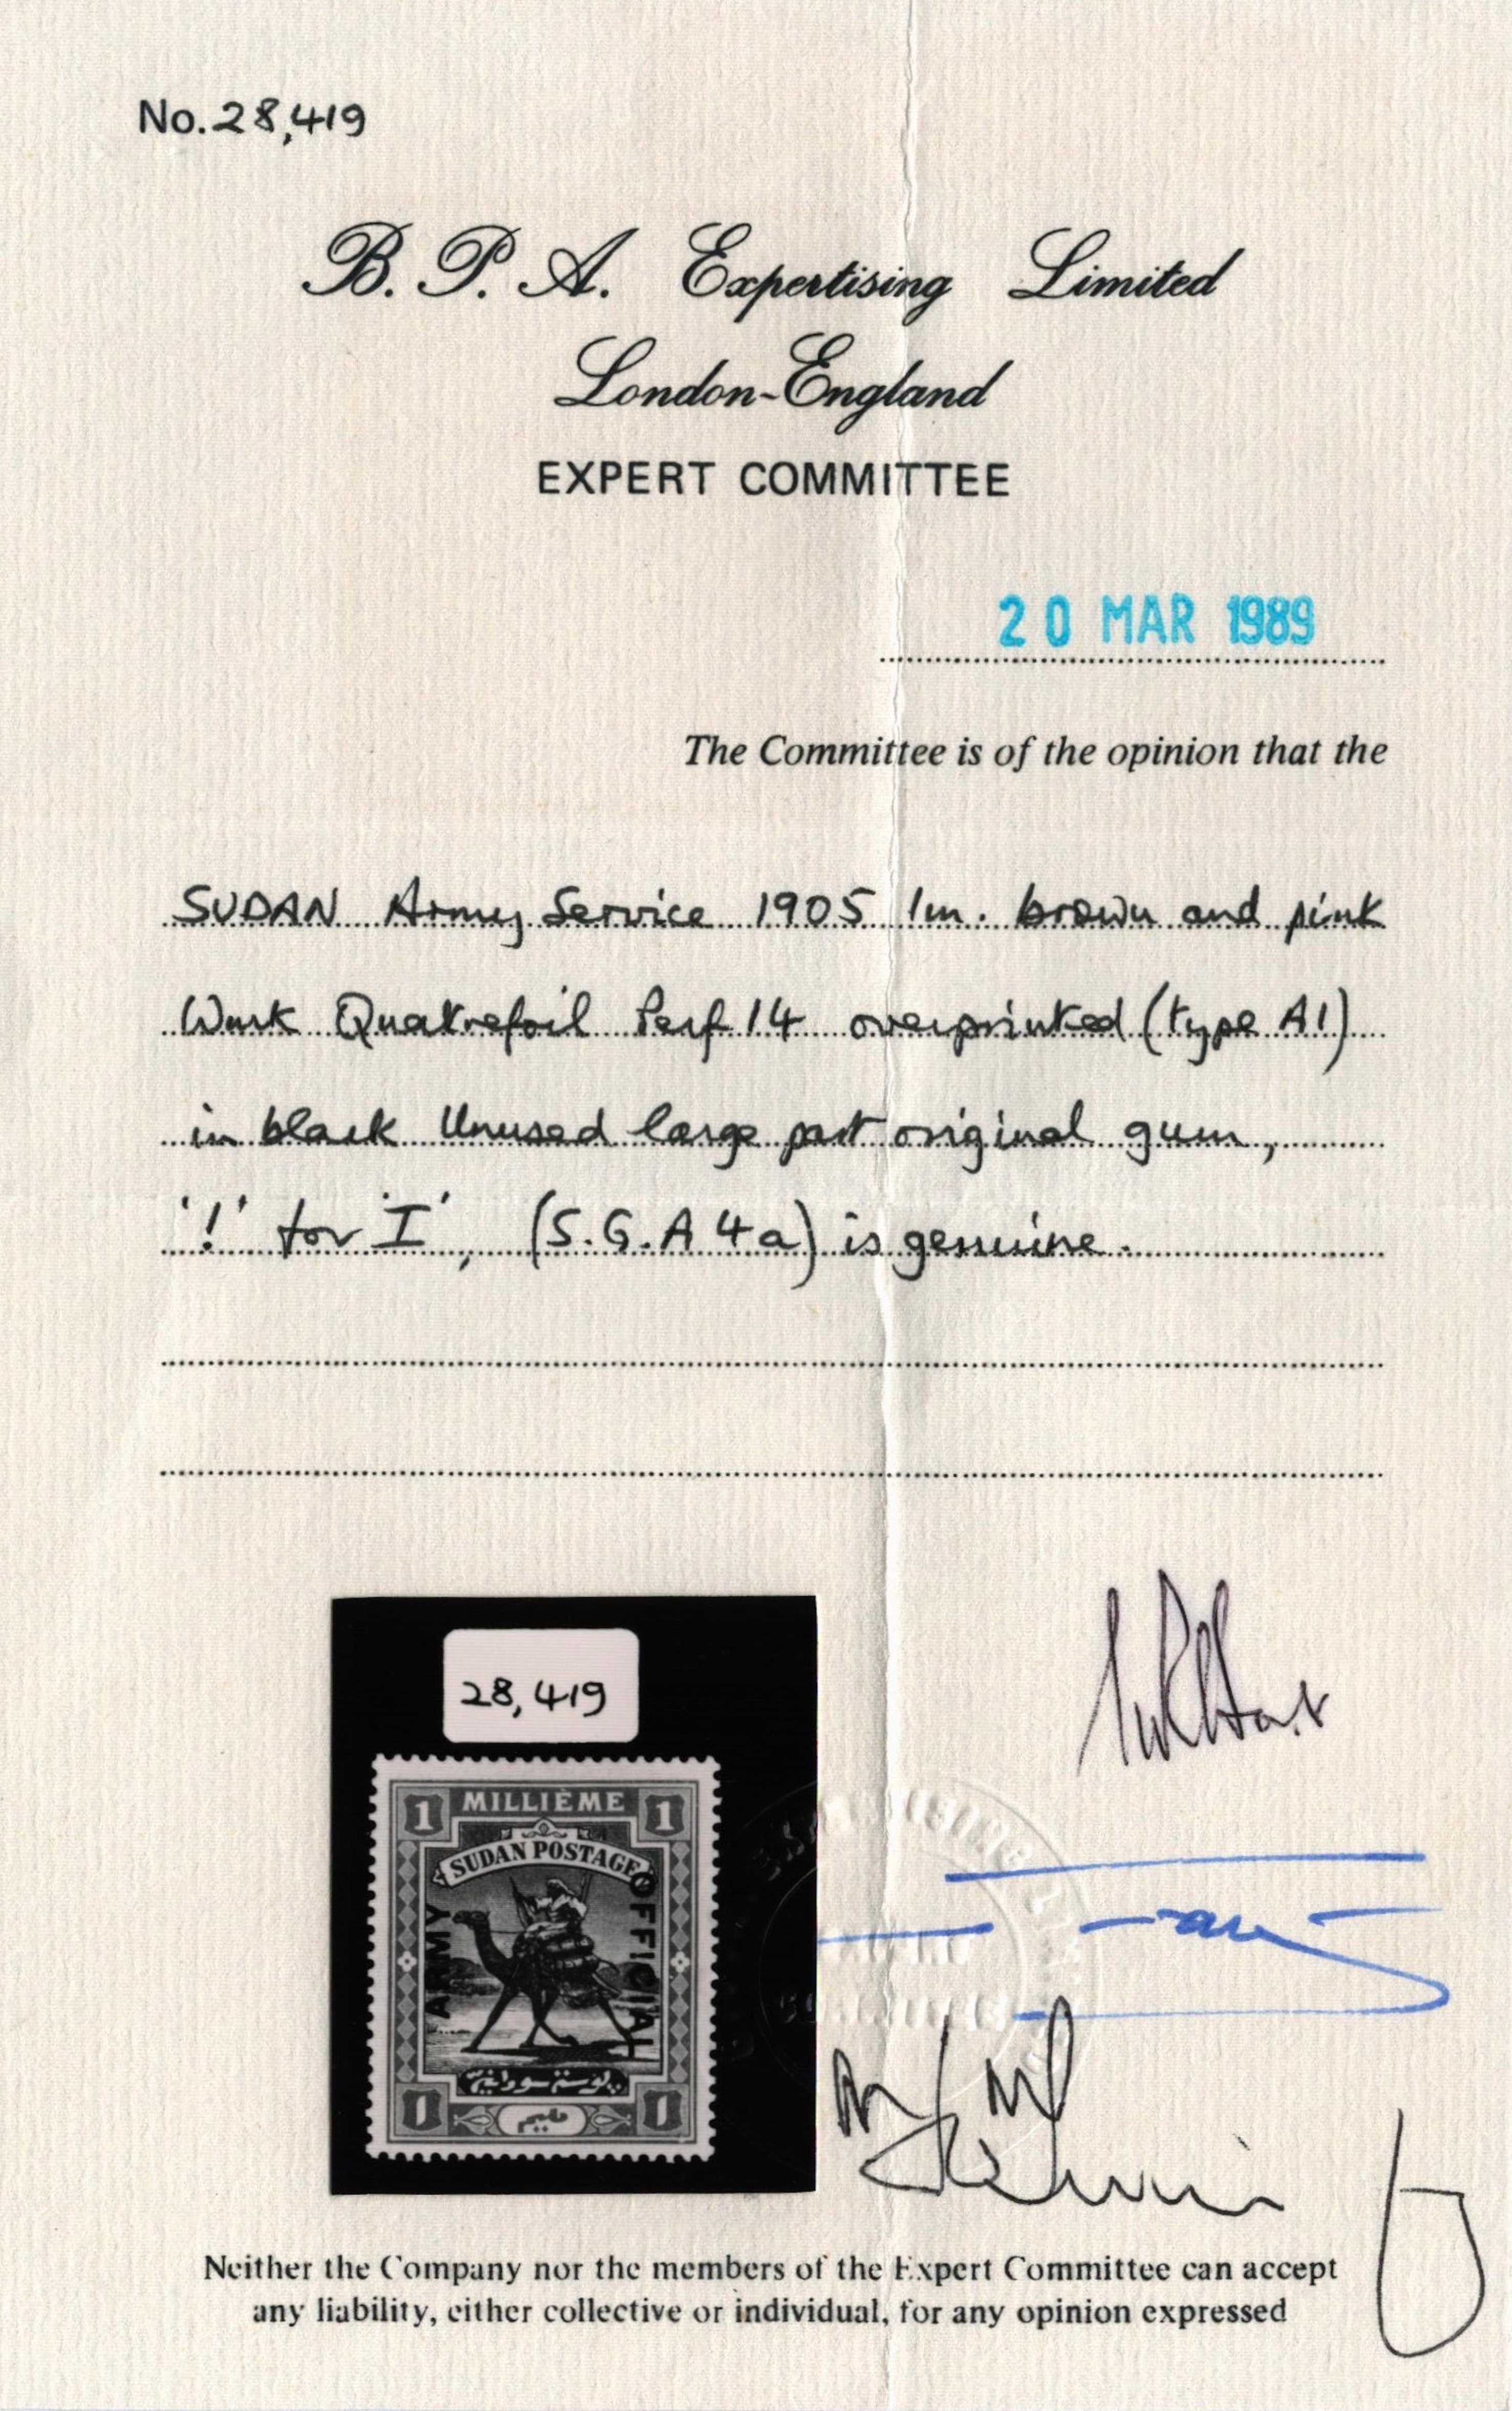 No. 28,419
B. P. A. Expertising Limited
London-England
EXPERT COMMITTEE
20 MAR 1989
The Committee is of the opinion that the
SUDAN Army Service 1905 1m. brown and pink
Wmk Quatrefoil Perf 14 overprinted (type A1)
in black Unused large part original gum,
'!' for 'I', (S.G. A4a) is genuine.
28,419
1 MILLIÈME 1
SUDAN POSTAGE
ARMY
OFFICIAL
بوستة سودانية
١ مليم ١
Neither the Company nor the members of the Expert Committee can accept
any liability, either collective or individual, for any opinion expressed